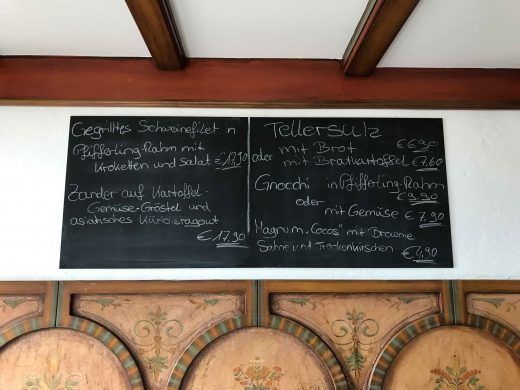 Gegrilltes Schweinefilet in
Pfifferling-Rahm mit
Kroketten und Salat €17,90
Zander auf Kartoffel-
Gemüse-Gröstel und
asiatisches Kürbisragout
€17,90
Tellersulz
mit Brot €6,90
oder
mit Bratkartoffel €7,60
Gnocchi in Pfifferling-Rahm
€9,90
oder
mit Gemüse €7,90
Magnum „Cocos" mit Brownie
Sahne und Trockenkirschen
€6,90